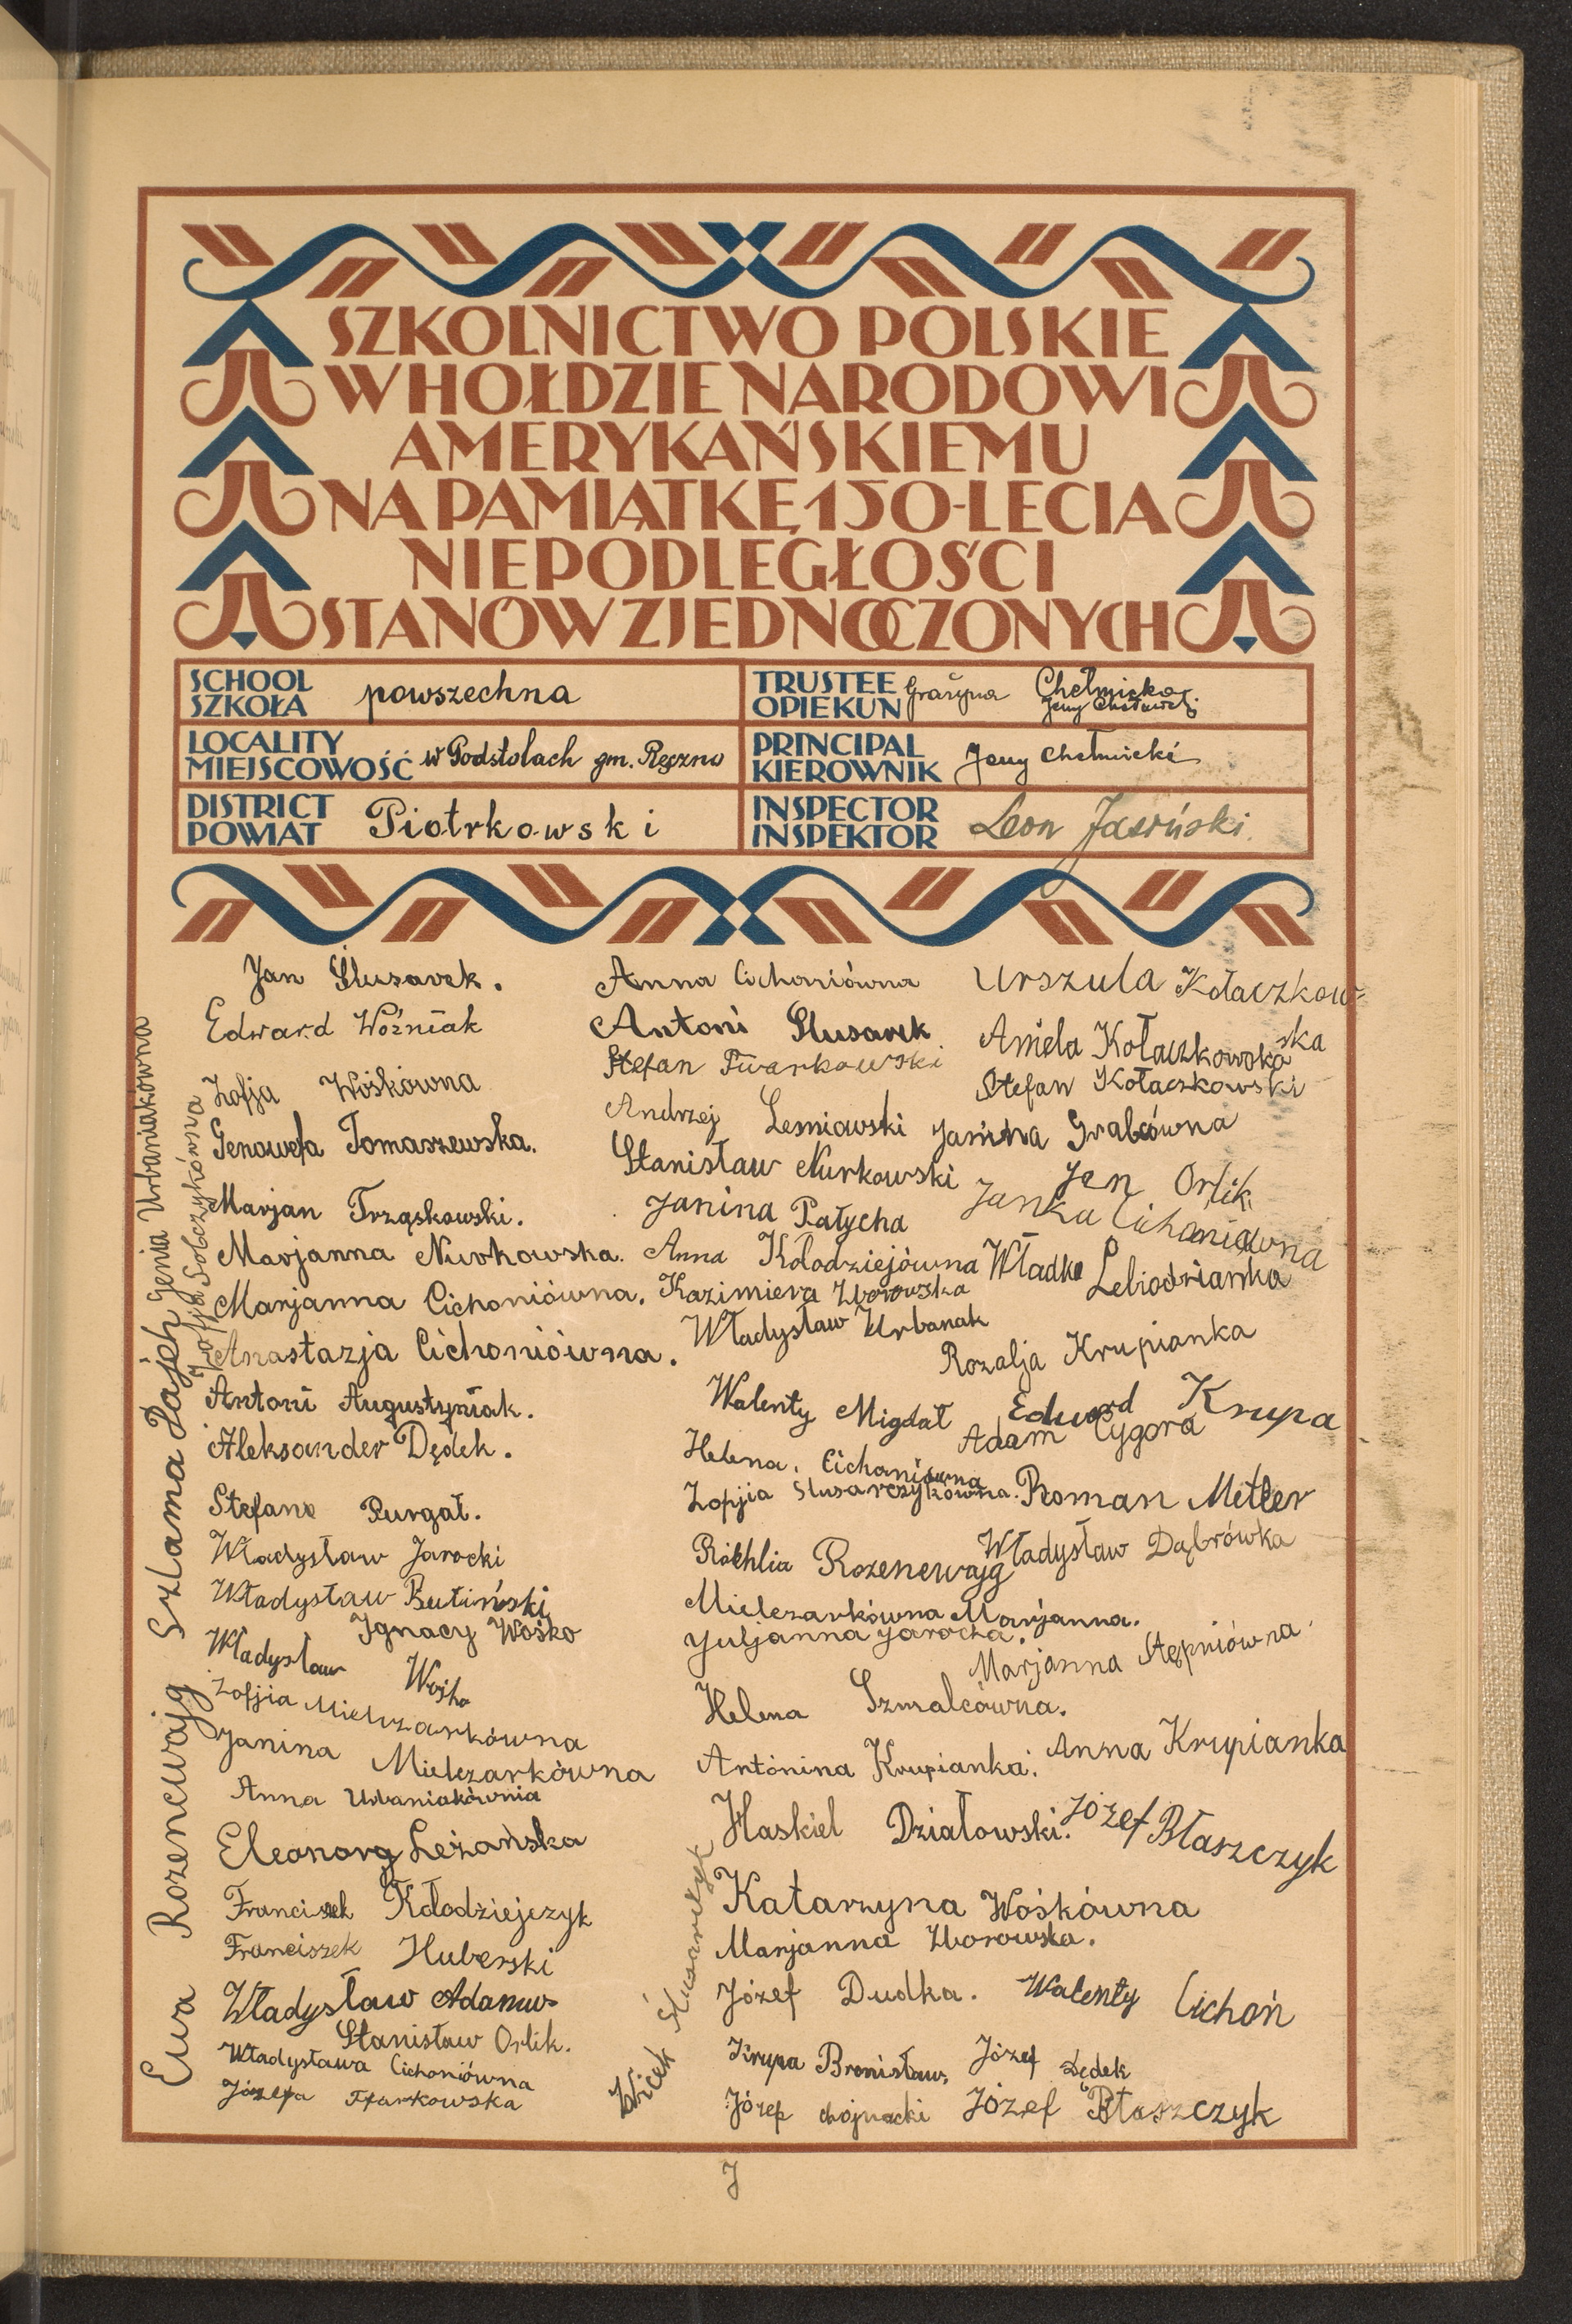 SZKOLNICTWO POLSKIE
W HOŁDZIE NARODOWI
AMERYKAŃSKIEMU
NA PAMIĄTKĘ 150-LECIA
NIEPODLEGŁOŚCI
STANÓW ZJEDNOCZONYCH
SCHOOL
SZKOŁA powszechna
TRUSTEE
OPIEKUN Grażyna Chełmicka
LOCALITY
MIEJSCOWOŚĆ w Podstolach gm. Ręczno
PRINCIPAL
KIEROWNIK Jerzy Chełmicki
DISTRICT
POWIAT Piotrkowski
INSPECTOR
INSPEKTOR Leon Jasiński
Jan Ślusarek.
Edward Woźniak
Zofja Wośkówna
Genowefa Tomaszewska.
Marjan Trząskowski.
Marjanna Nurkowska.
Marjanna Cichoniówna.
Anastazja Cichonióiwna.
Antoni Augustyniak.
Aleksander Dędek.
Stefan Purgał.
Władysław Jarocki
Władysław Butiński
Ignacy Wośko
Władysław Wośko
Zofjia Mielczarkówna
Janina Mielczarkówna
Anna Urbaniakównia
Eleonora Leżańska
Franciszek Kołodziejczyk
Franciszek Huberski
Władysław Adamus
Stanisław Orlik.
Władysława Cichoniówna
Józefa Tfarkowska
Genia Urbaniakówna
Zofja Sobczykówna
Szlama Pajęh
Ewa Rozencwajg
Anna Cichoniówna
Antoni Ślusarek
Stefan Twarkowski
Andrzej Lesniowski
Stanisław Nurkowski
Janina Patycha
Anna Kołodziejówna
Kazimiera Zborowska
Władysław Urbanak
Walenty Migdał
Helena Cichoniówna
Zopjia Slusarczykówna.
Róchlia Rozenewajg
Mielczarkówna Marjanna.
Juljanna Jarocka.
Helena Szmalcówna.
Antonina Krupianka.
Haskiel Działowski.
Katarzyna Wośkówna
Marjanna Zborowska.
Józef Dudka.
Krupa Bronisław.
Józef Chojnacki
Wicek Ślusarczyk
Urszula Kołaczkow-
ska
Aniela Kołaczkowska
Stefan Kołaczkowski
Janina Grabcówna
Jan Orlik
Janka Cichoniówna
Władka Lebiodzianka
Rozalja Krupianka
Edward Krupa
Adam Cygora
Roman Metler
Władysław Dąbrówka
Marjanna Stępniówna
Anna Krupianka
Józef Błaszczyk
Walenty Cichoń
Józef Dędek
Józef Błaszczyk
J